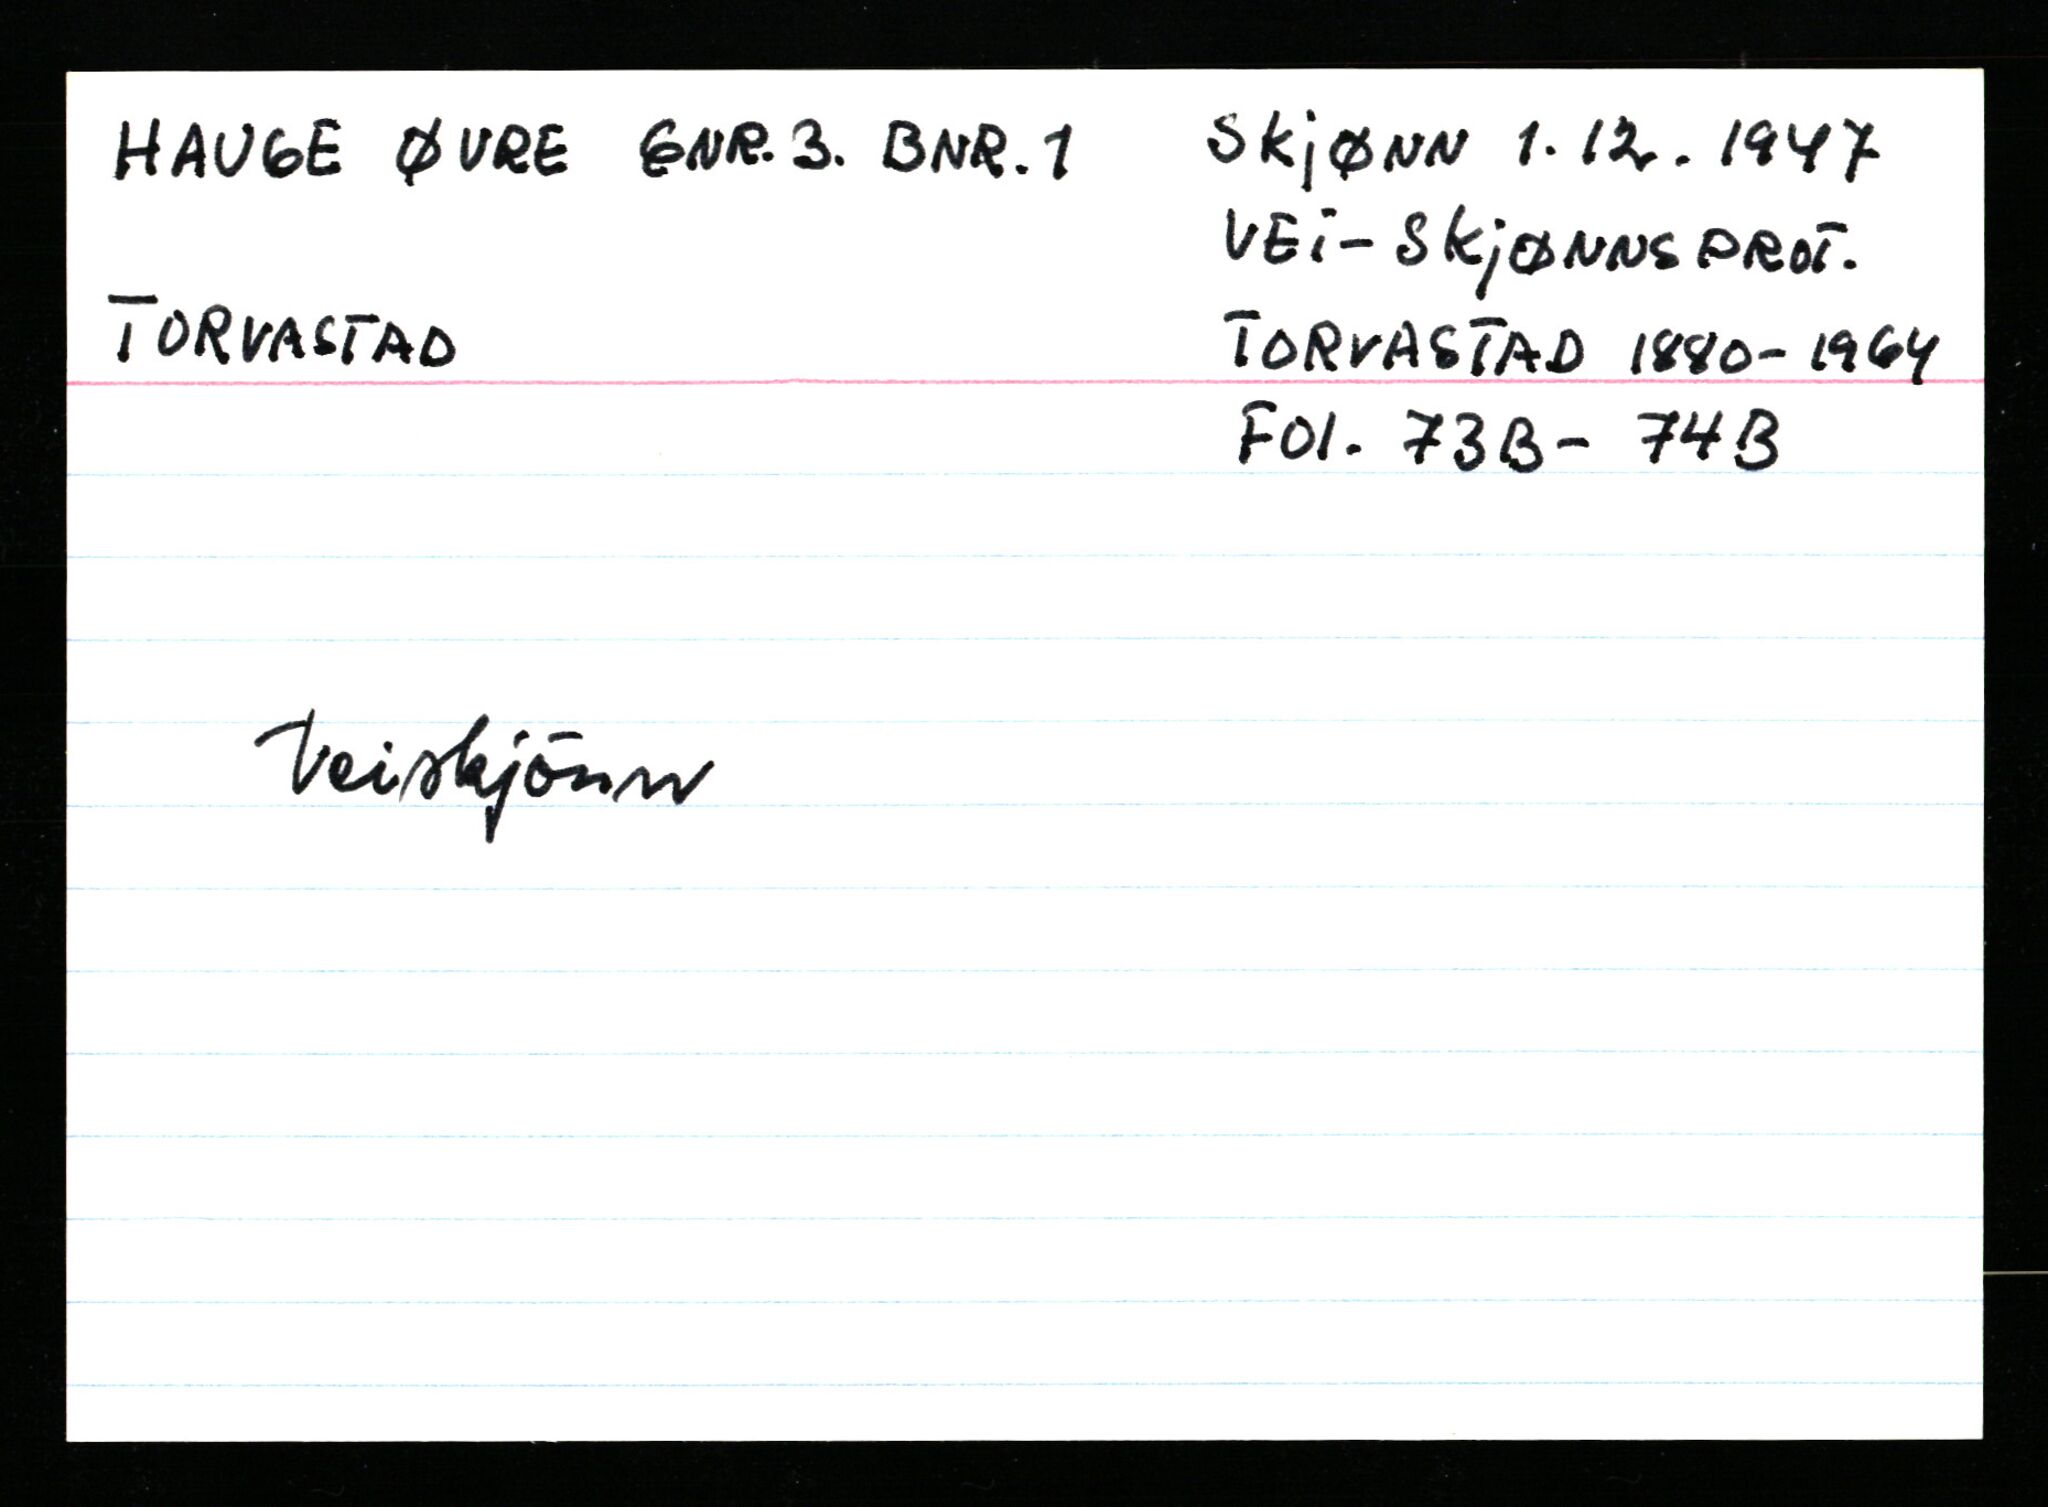 HAUGE ØVRE GNR. 3. BNR. 1
TORVASTAD
SKJØNN 1. 12. 1947
VEI-SKJØNNSPROT.
TORVASTAD 1880-1964
FOL. 73B- 74B
Veiskjönn